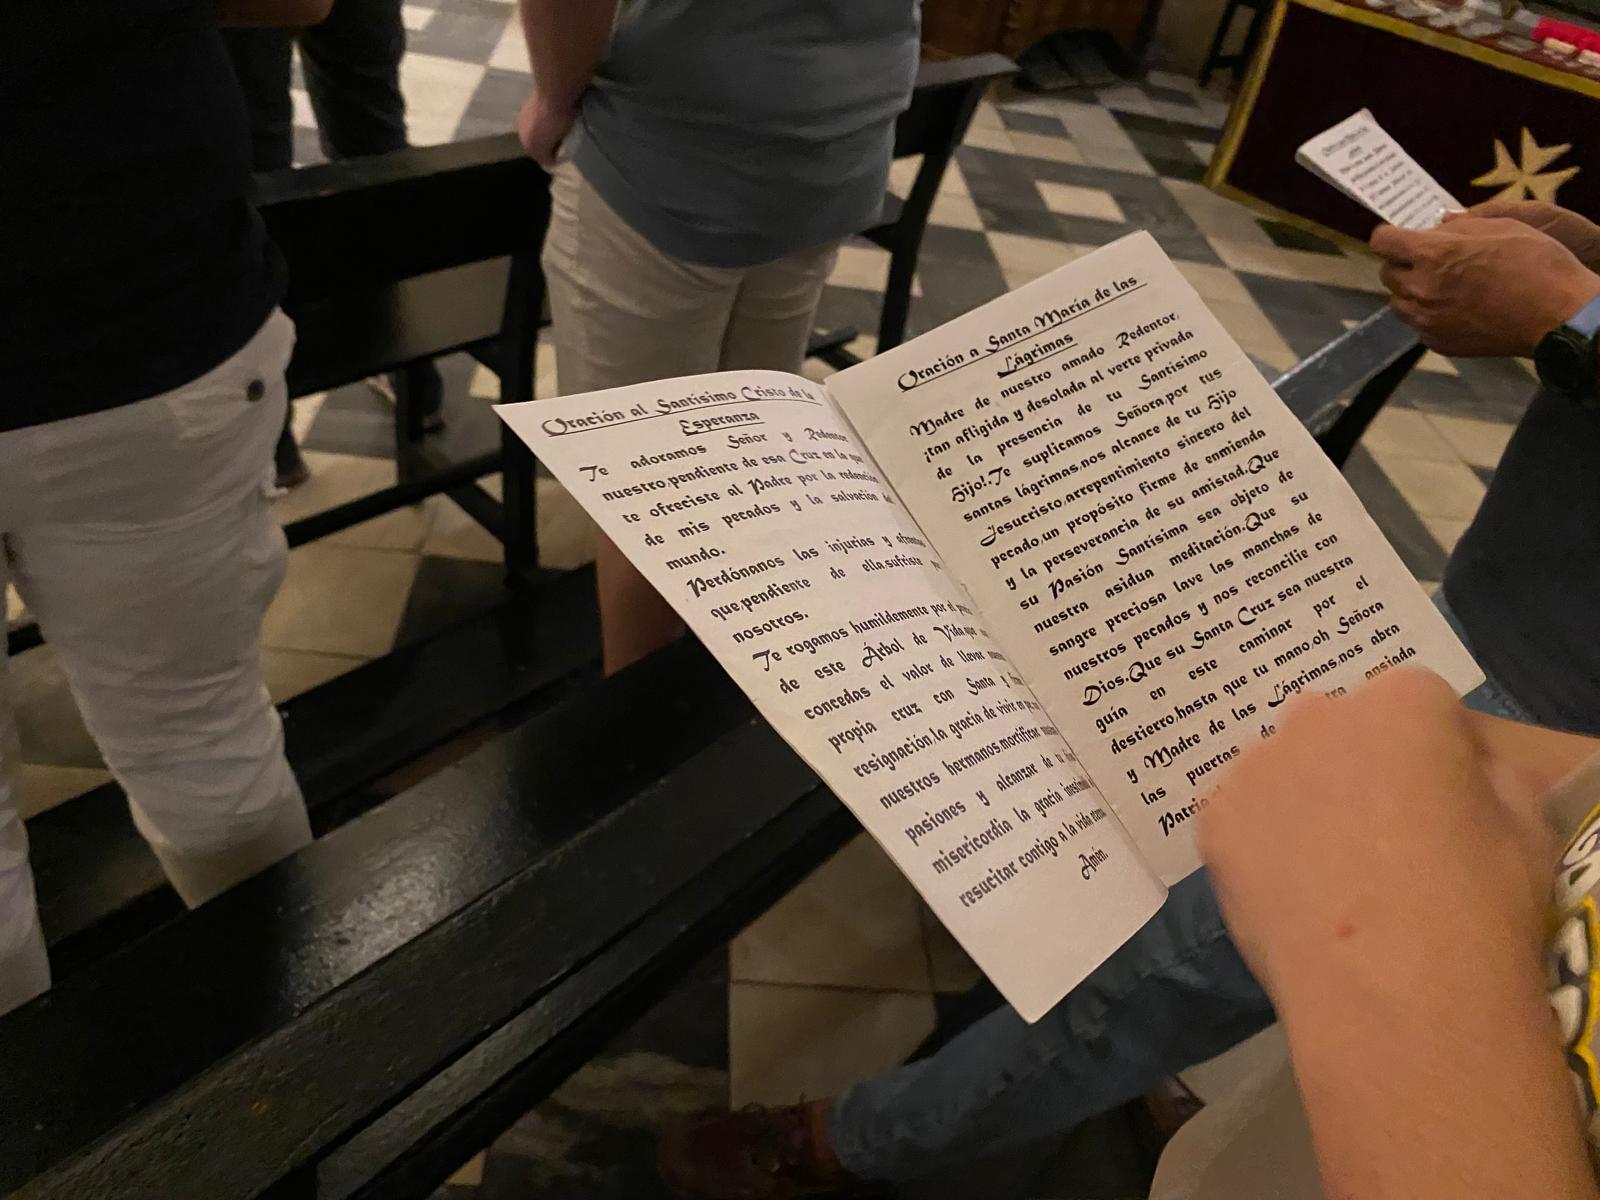 Oración al Santísimo Cristo de la
Esperanza
Te adoramos Señor y Redentor
nuestro,pendiente de esa Cruz en la que
te ofreciste al Padre por la redención
de mis pecados y la salvación del
mundo.
Perdónanos las injurias y afrentas
que,pendiente de ella,sufriste
nosotros.
Te rogamos humildemente por el
de este Árbol de Vida,que
concedas el valor de llevar
propia cruz con Santa y
resignación,la gracia de vivir en
nuestros hermanos,mortificar
pasiones y alcanzar de tu
misericordia la gracia
resucitar contigo a la vida eterna
Amén.
Oración a Santa María de las
Lágrimas
Madre de nuestro amado Redentor,
¡tan afligida y desolada al verte privada
de la presencia de tu Santísimo
Hijo!.Te suplicamos Señora,por tus
santas lágrimas,nos alcance de tu Hijo
Jesucristo,arrepentimiento sincero del
pecado,un propósito firme de enmienda
y la perseverancia de su amistad.Que
su Pasión Santísima sea objeto de
nuestra asidua meditación.Que su
sangre preciosa lave las manchas de
nuestros pecados y nos reconcilie con
Dios.Que su Santa Cruz sea nuestra
guía en este caminar por el
destierro,hasta que tu mano,oh Señora
y Madre de las Lágrimas,nos abra
las puertas de ansiada